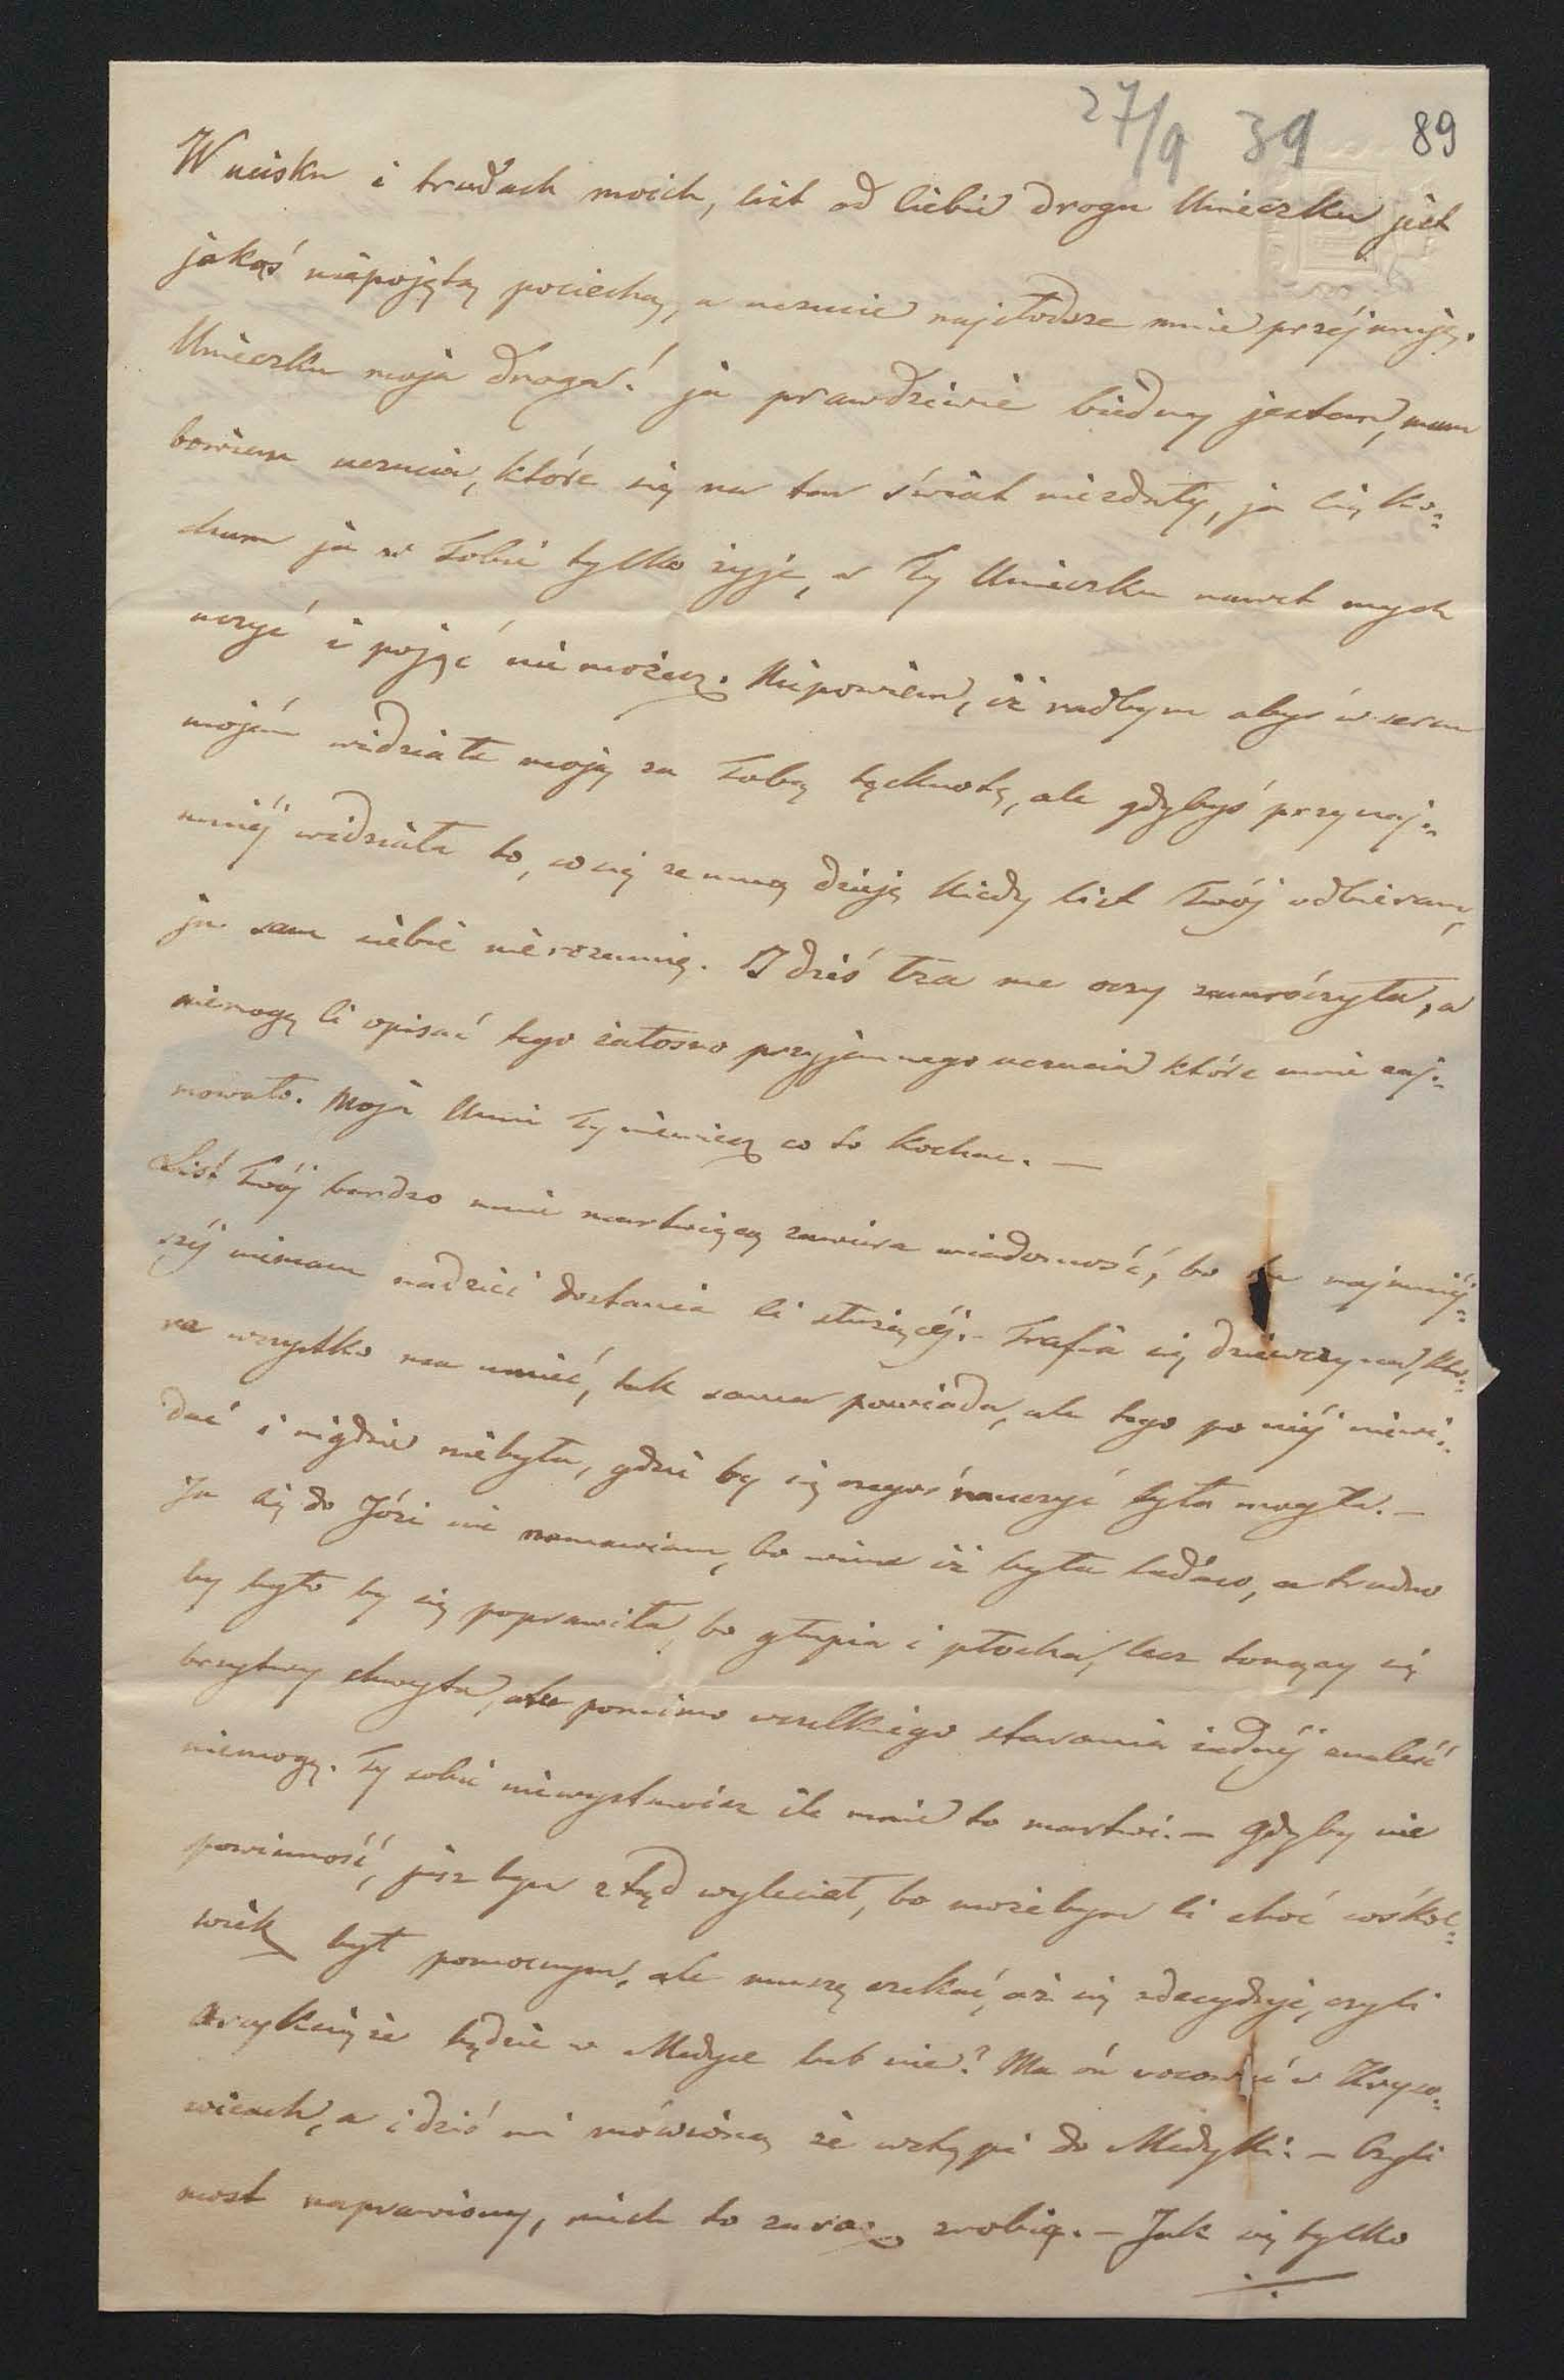 27/9 39 89
W ucisku i trudach moich, list od Ciebie droga Uneczku jest
jakąś niepojętą pociechą, a uczucie najsłodsze mnie przejmuje.
Uneczku moja droga! ja prawdziwie biedny jestem, mam
bowiem uczucia, które się na ten świat niezdały, ja Cię ko=
cham ja w Tobie tylko żyję, a Ty Uneczku nawet mych
uczuć i pojąć nie możesz. Niepowiem, iż radbym abyś w sercu
mojém widziała moją za Tobą tęsknotę, ale gdybyś przynaj=
mniéj widziała to, co się zemną dzieje kiedy list Twój odbieram,
ja sam siebie nierozumię. I dziś łza me oczy zamroczyła, a
niemogę Ci opisać tego żałosno przyjemnego uczucia które mnie zaj=
mowało. Moja Uniu Ty niewiesz co to kochać. —
List Twój bardzo mnie martwiącą zawiera wiadomość, bo najmniéj=
széj niemam nadziei dostania Ci służącéj. — Trafia się dziewczyna, któ=
ra wszystko ma umieć, tak sama powiada, ale tego po niéj niewi=
dać i nigdzie niebyła, gdzie by się czegoś nauczyć była mogła. —
Ja Cię do Józi nie namawiam, bo wiem iż była ladaco, a trudno
by było by się poprawiła, bo głupia i płocha, lecz tonący się
brzytwy chwyta, ale pomimo wszelkiego starania żadnéj znaleść
niemogę. Ty sobie niewystawisz ile mnie to martwi. — Gdyby nie
powinność, już bym ztąd wyleciał, bo możebym Ci choć cóśkol=
wiek był pomocnym, ale muszę czekać, aż się zdecyduje, czyli
Arcyksiąże będzie w Medyce lub nie? Ma ón nocować w Kryso=
wicach, a i dziś mi mówiono że wstąpi do Medyki. — Czyli
most naprawiony, niech to zaraz zrobią. — Jak się tylko
./.